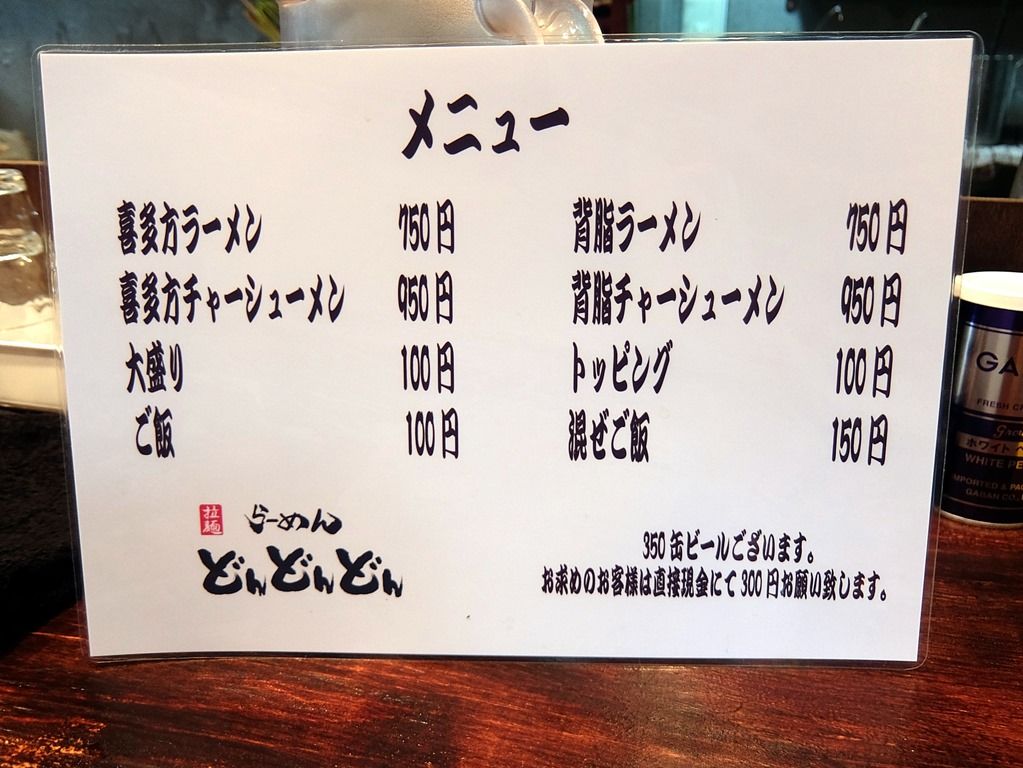 メニュー
喜多方ラーメン 750円
喜多方チャーシューメン 950円
大盛り 100円
ご飯 100円
背脂ラーメン 750円
背脂チャーシューメン 950円
トッピング 100円
混ぜご飯 150円
拉麺
らーめん
どんどんどん
350缶ビールございます。
お求めのお客様は直接現金にて300円お願い致します。
GA
FRESH
ホワイト
WHITE
IMPORTED &
GABAN CO.